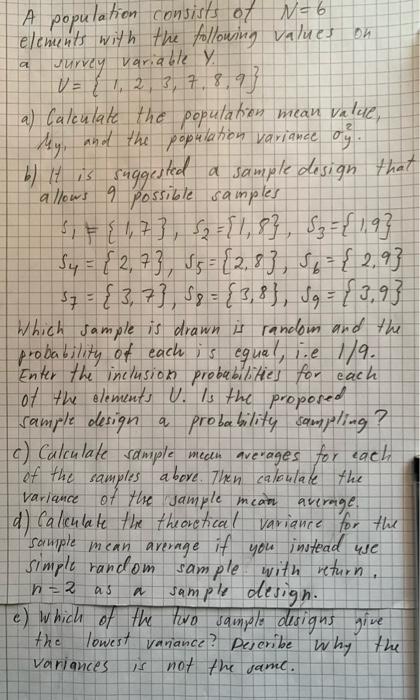 A population consists of N=6
elements with the following values on
a survey variable Y.
U = { 1, 2, 3, 7, 8, 9}
a) Calculate the population mean value,
My, and the population variance σ²y.
b) It is suggested a sample design that
allows 9 possible samples
S1 = {1,7}, S2 = {1,8}, S3 = {1,9}
S4 = {2,7}, S5 = {2,8}, S6 = {2,9}
S7 = {3,7}, S8 = {3,8}, S9 = {3,9}
Which sample is drawn is random and the
probability of each is equal, i.e 1/9.
Enter the inclusion probabilities for each
of the elements U. Is the proposed
sample design a probability sampling?
c) Calculate sample mean averages for each
of the samples above. Then calculate the
variance of the sample mean average.
d) Calculate the theoretical variance for the
sample mean average if you instead use
simple random sample with return,
n=2 as a sample design.
e) Which of the two sample designs give
the lowest variance? Describe why the
variances is not the same.